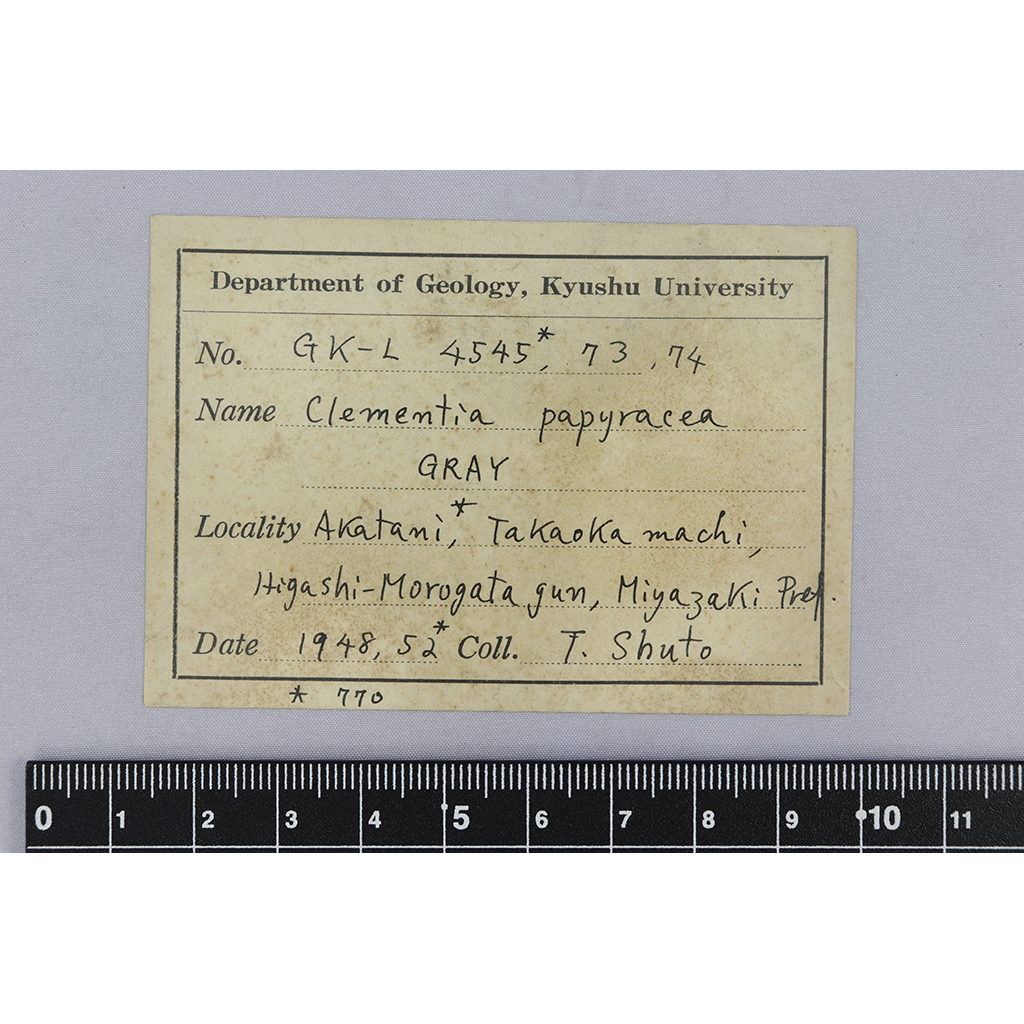 Department of Geology, Kyushu University
No. GK-L 4545*, 73, 74
Name Clementia papyracea
GRAY
Locality Akatani,* Takaoka machi,
Higashi-Morogata gun, Miyazaki Pref.
Date 1948, 52* Coll. T. Shuto
* 770
0 1 2 3 4 5 6 7 8 9 10 11